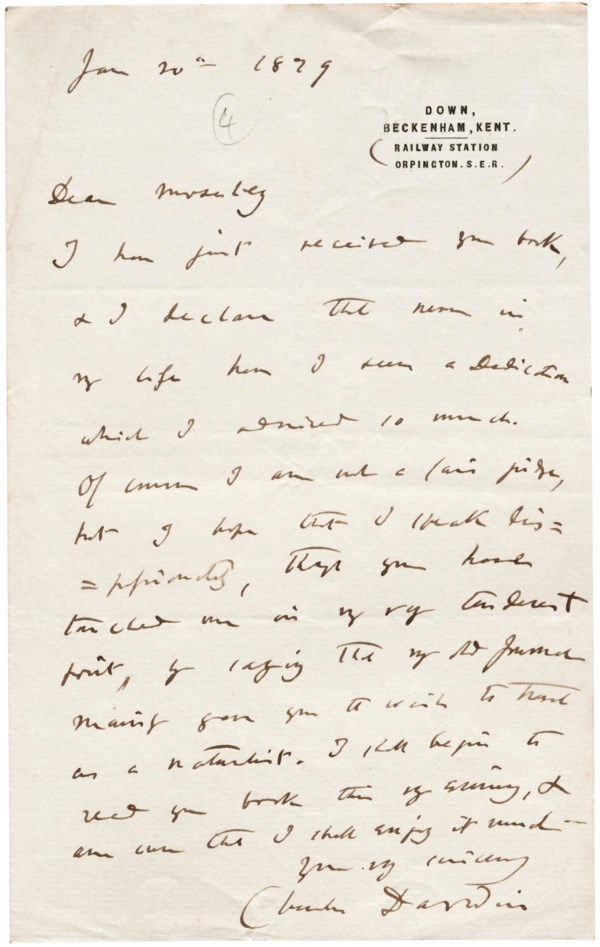 Jan 20th 1879
4
DOWN,
BECKENHAM, KENT.
(RAILWAY STATION
ORPINGTON. S.E.R.)
Dear Moseley
I have just received your book,
& I declare that never in
my life have I seen a Dedication
which I admired so much.
Of course I am not a fair judge,
but I hope that I speak dis=
=passionately, though you have
touched me in my very tenderest
point, by saying that my old Journal
mainly gave you the wish to travel
as a naturalist. I shall begin to
read your book this very evening, &
am sure that I shall enjoy it much—
Yours very sincerely
Charles Darwin